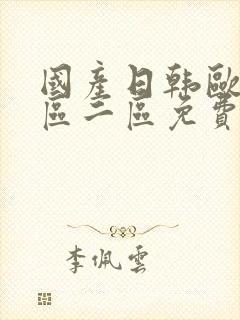 國產日韩歐
區二區免費
李佩雲